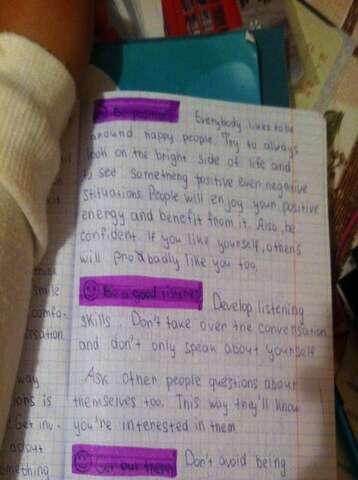 Be positive Everybody likes to be
around happy people. Try to always
look on the bright side of life and
to see something positive even negative
stituations. People will enjoy your positive
energy and benefit from it. Also, be
confident. If you like yourself, others
will probadly like you too.
Be a good listener Develop listening
skills. Don't take over the conversation
and don't only speak about yourself
Ask other people questions about
themselves too. This way they'll know
you're interested in them
Get out there Don't avoid being
smile
comfo-
rsation
way
ons is
Get inv-
about
mething